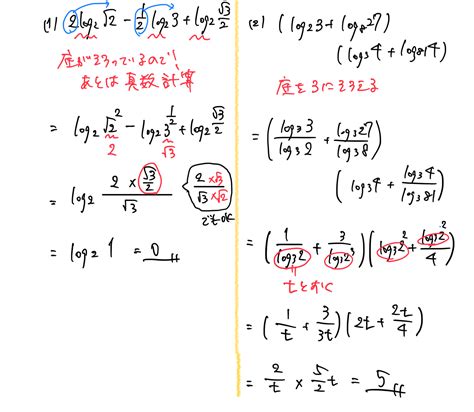 (1) 2log₂√2 − 1/2 log₂3 + log₂ √3/2
底がそろっているので!
あとは真数計算
= log₂√2² − log₂3^(1/2) + log₂ √3/2
2 √3
= log₂ (2 × √3/2)/√3
2×√3/√3×√2
でもOK
= log₂1 = 0
(2) (log₂3 + log₈27)
(log₃4 + log₈₁4)
底を3にそろえる
= (log₃3/log₃2 + log₃27/log₃8)
(log₃4 + log₃4/log₃81)
= (1/log₃2 + 3/log₃2³)(log₃2² + log₃2²/4)
tとおく
= (1/t + 3/3t)(2t + 2t/4)
= 2/t × 5/2 t = 5